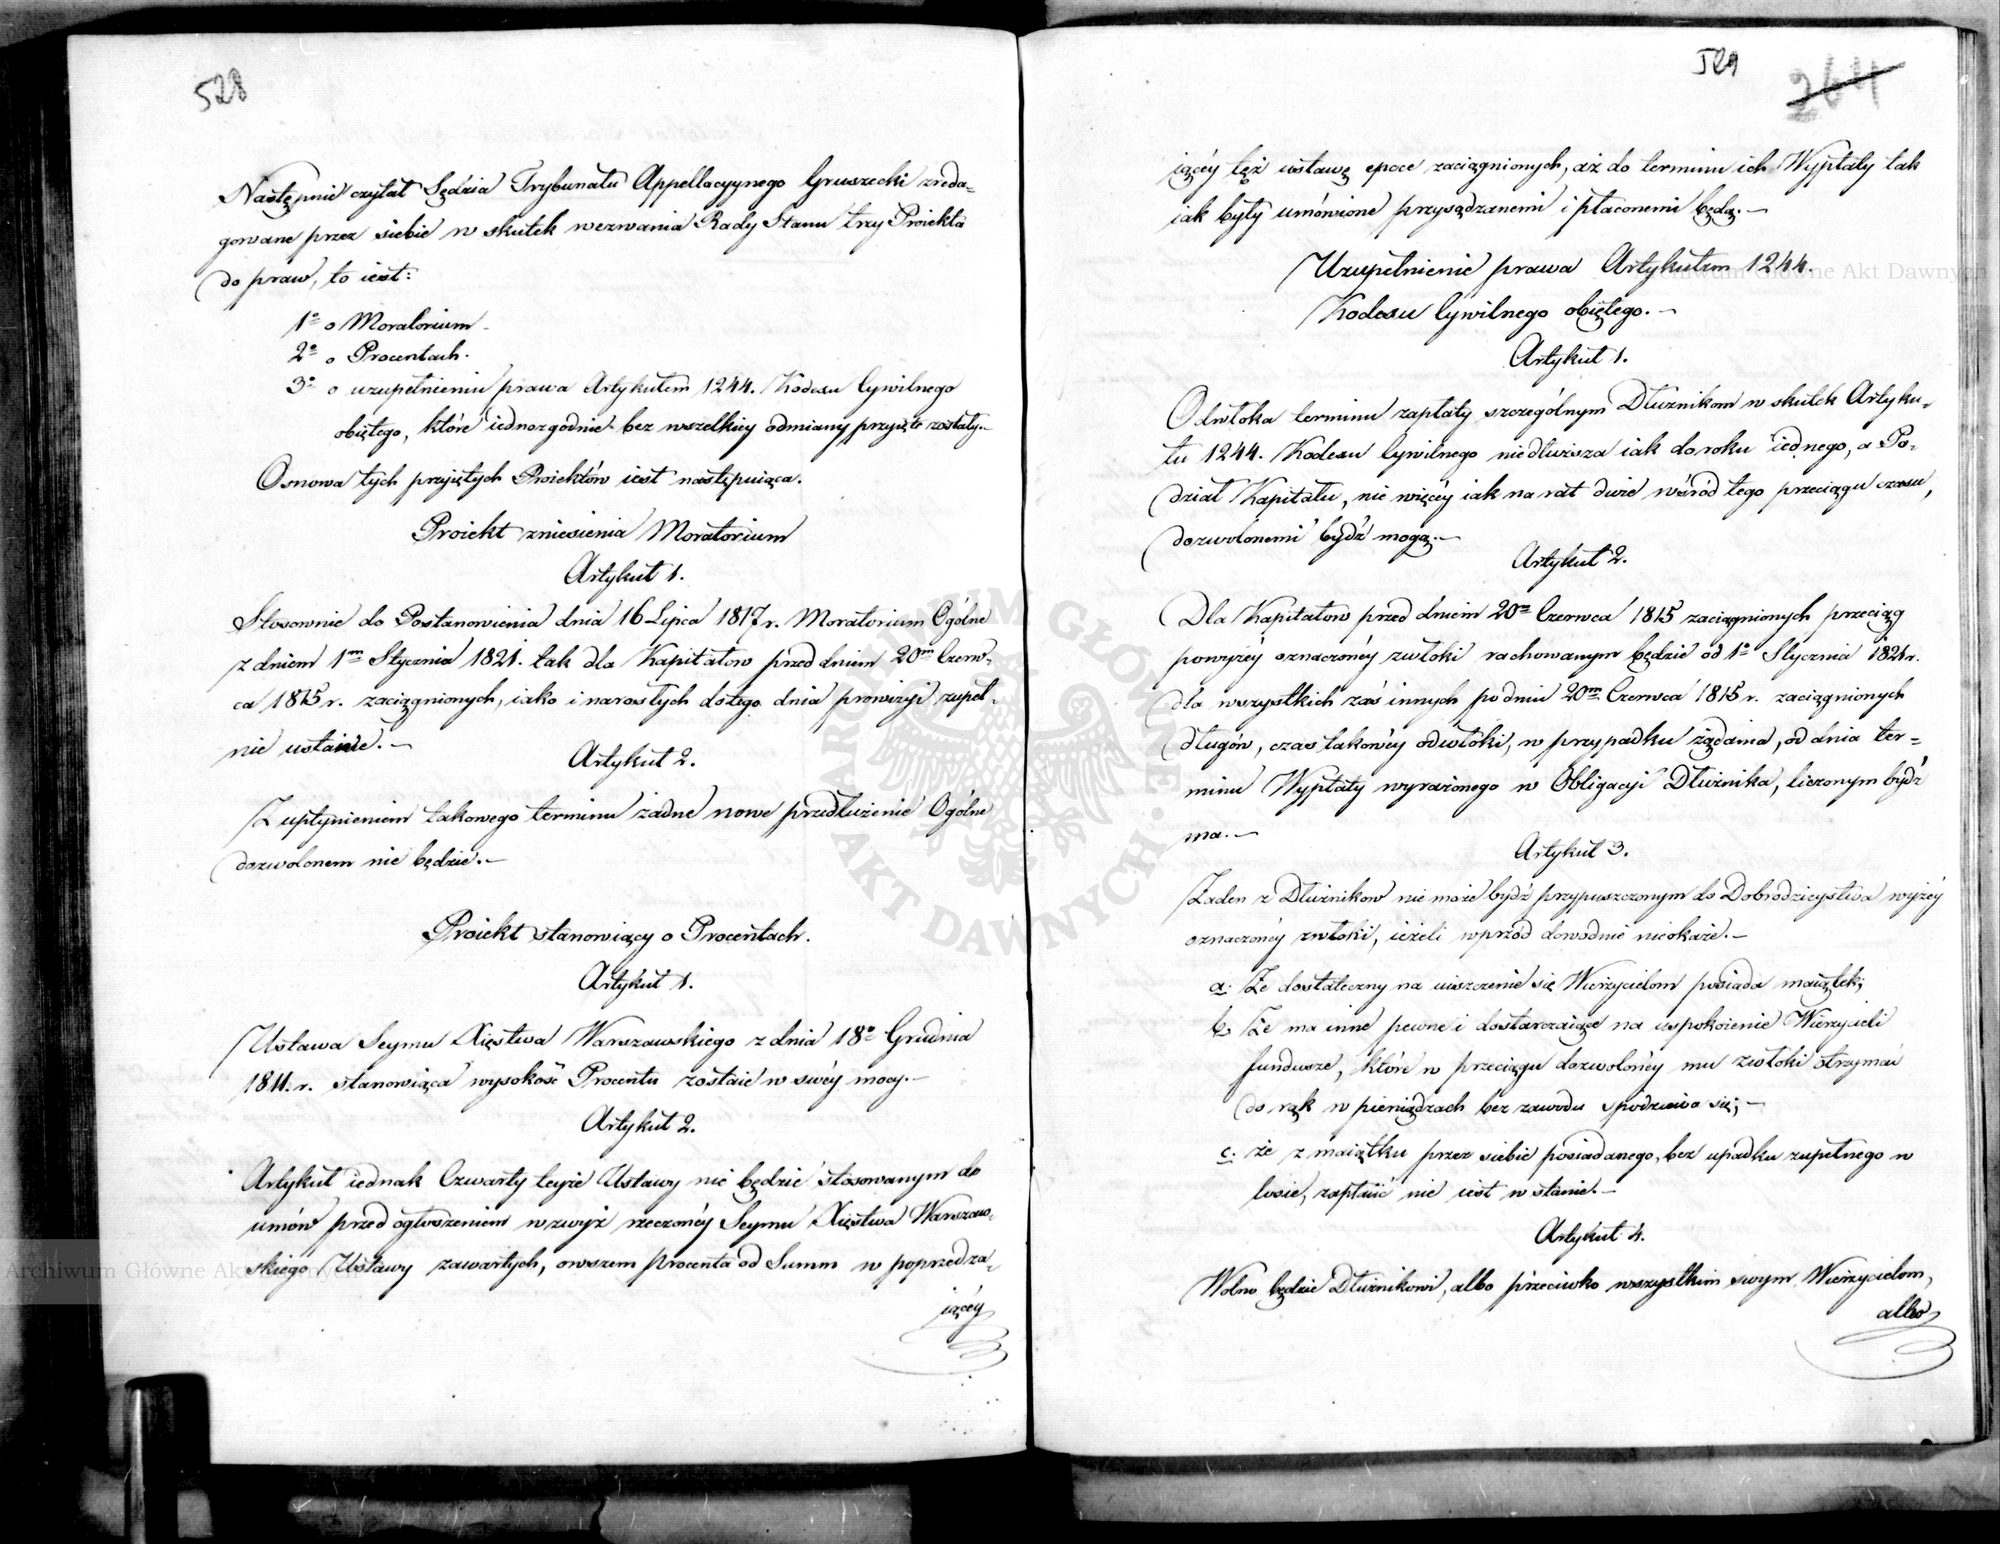 528
Następnie czytał Sędzia Trybunału Appellacyynego Gruszecki zreda-
gowane przez siebie w skutek wezwania Rady Stanu trzy Proiekta
do praw, to iest:
1º o Moratorium.
2º o Procentach.
3º o uzupełnieniu prawa Artykułem 1244. Kodexu Cywilnego
obiętego, które iednozgodnie bez wszelkiey odmiany przyięte zostały.-
Osnowa tych przyiętych Proiektów iest następuiąca.
Proiekt zniesienia Moratorium
Artykuł 1.
Stosownie do Postanowienia dnia 16 Lipca 1817 r. Moratorium Ogólne
z dniem 1m Stycznia 1821. tak dla Kapitałow przed dniem 20m Czerw-
ca 1815 r. zaciągnionych, iako i narosłych do tego dnia prowizyi zupeł-
nie ustanie.-
Artykuł 2.
Z upłynieniem takowego terminu żadne nowe przedłużenie Ogólne
dozwolonem nie będzie.-
Proiekt stanowiący o Procentach.
Artykuł 1.
Ustawa Seymu Xięstwa Warszawskiego z dnia 18º Grudnia
1811. r. stanowiąca wysokość Procentu zostaie w swéy mocy.-
Artykuł 2.
Artykuł iednak Czwarty teyże Ustawy nie będzie stosowanym do
umów przed ogłoszeniem wzwyż rzeczonéy Seymu Xięstwa Warszaw-
skiego Ustawy zawartych, owszem procenta od Summ w poprzedza-
iącéy
529
264
iącéy też ustawę epoce zaciągnionych, aż do terminu ich Wypłaty tak
iak były umówione przysądzanemi i płaconemi będą.-
Uzupełnienie prawa Artykułem 1244.
Kodexu Cywilnego obiętego.-
Artykuł 1.
Odwłoka terminu zapłaty szczególnym Dłużnikom w skutek Artyku-
łu 1244. Kodexu Cywilnego niedłuższa iak do roku iednego, a Po-
dział Kapitału, nie więcéy iak na rat dwie wśród tego przeciągu czasu,
dozwolonemi bydź mogą.-
Artykuł 2.
Dla Kapitałow przed dniem 20m Czerwca 1815 zaciągnionych przeciąg
powyżéy oznaczonéy zwłoki rachowanym będzie od 1º Stycznia 1821 r.
dla wszystkich zaś innych po dniu 20m Czerwca 1815 r. zaciągnionych
długów, czas takowéy odwłóki, w przypadku żądania, od dnia ter-
minu Wypłaty wyrażonego w Obligacyi Dłużnika, liczonym bydź
ma.-
Artykuł 3.
Żaden z Dłużnikow nie może bydź przypuszczonym do Dobrodzieystwa wyżéy
oznaczonéy zwłoki, ieżeli wprzód dowodnie nieokaże.-
a. Że dostateczny na uiszczenie się Wierzycielom posiada maiątek;
b. Że ma inne pewne i dostarczaiące na uspokoienie Wierzycieli
fundusze, które w przeciągu dozwolonéy mu zwłoki otrzymać
do rąk w pieniądzach bez zawodu spodziewa się;-
c. że z maiątku przez siebie posiadanego, bez upadku zupełnego w
losie, zapłacić nie iest w stanie.-
Artykuł 4.
Wolno będzie Dłużnikowi, albo przeciwko wszystkim swym Wierzycielom,
albo
Archiwum Główne Akt Dawnych
Archiwum Główne Akt Dawnych
ARCHIWUM GŁÓWNE AKT DAWNYCH